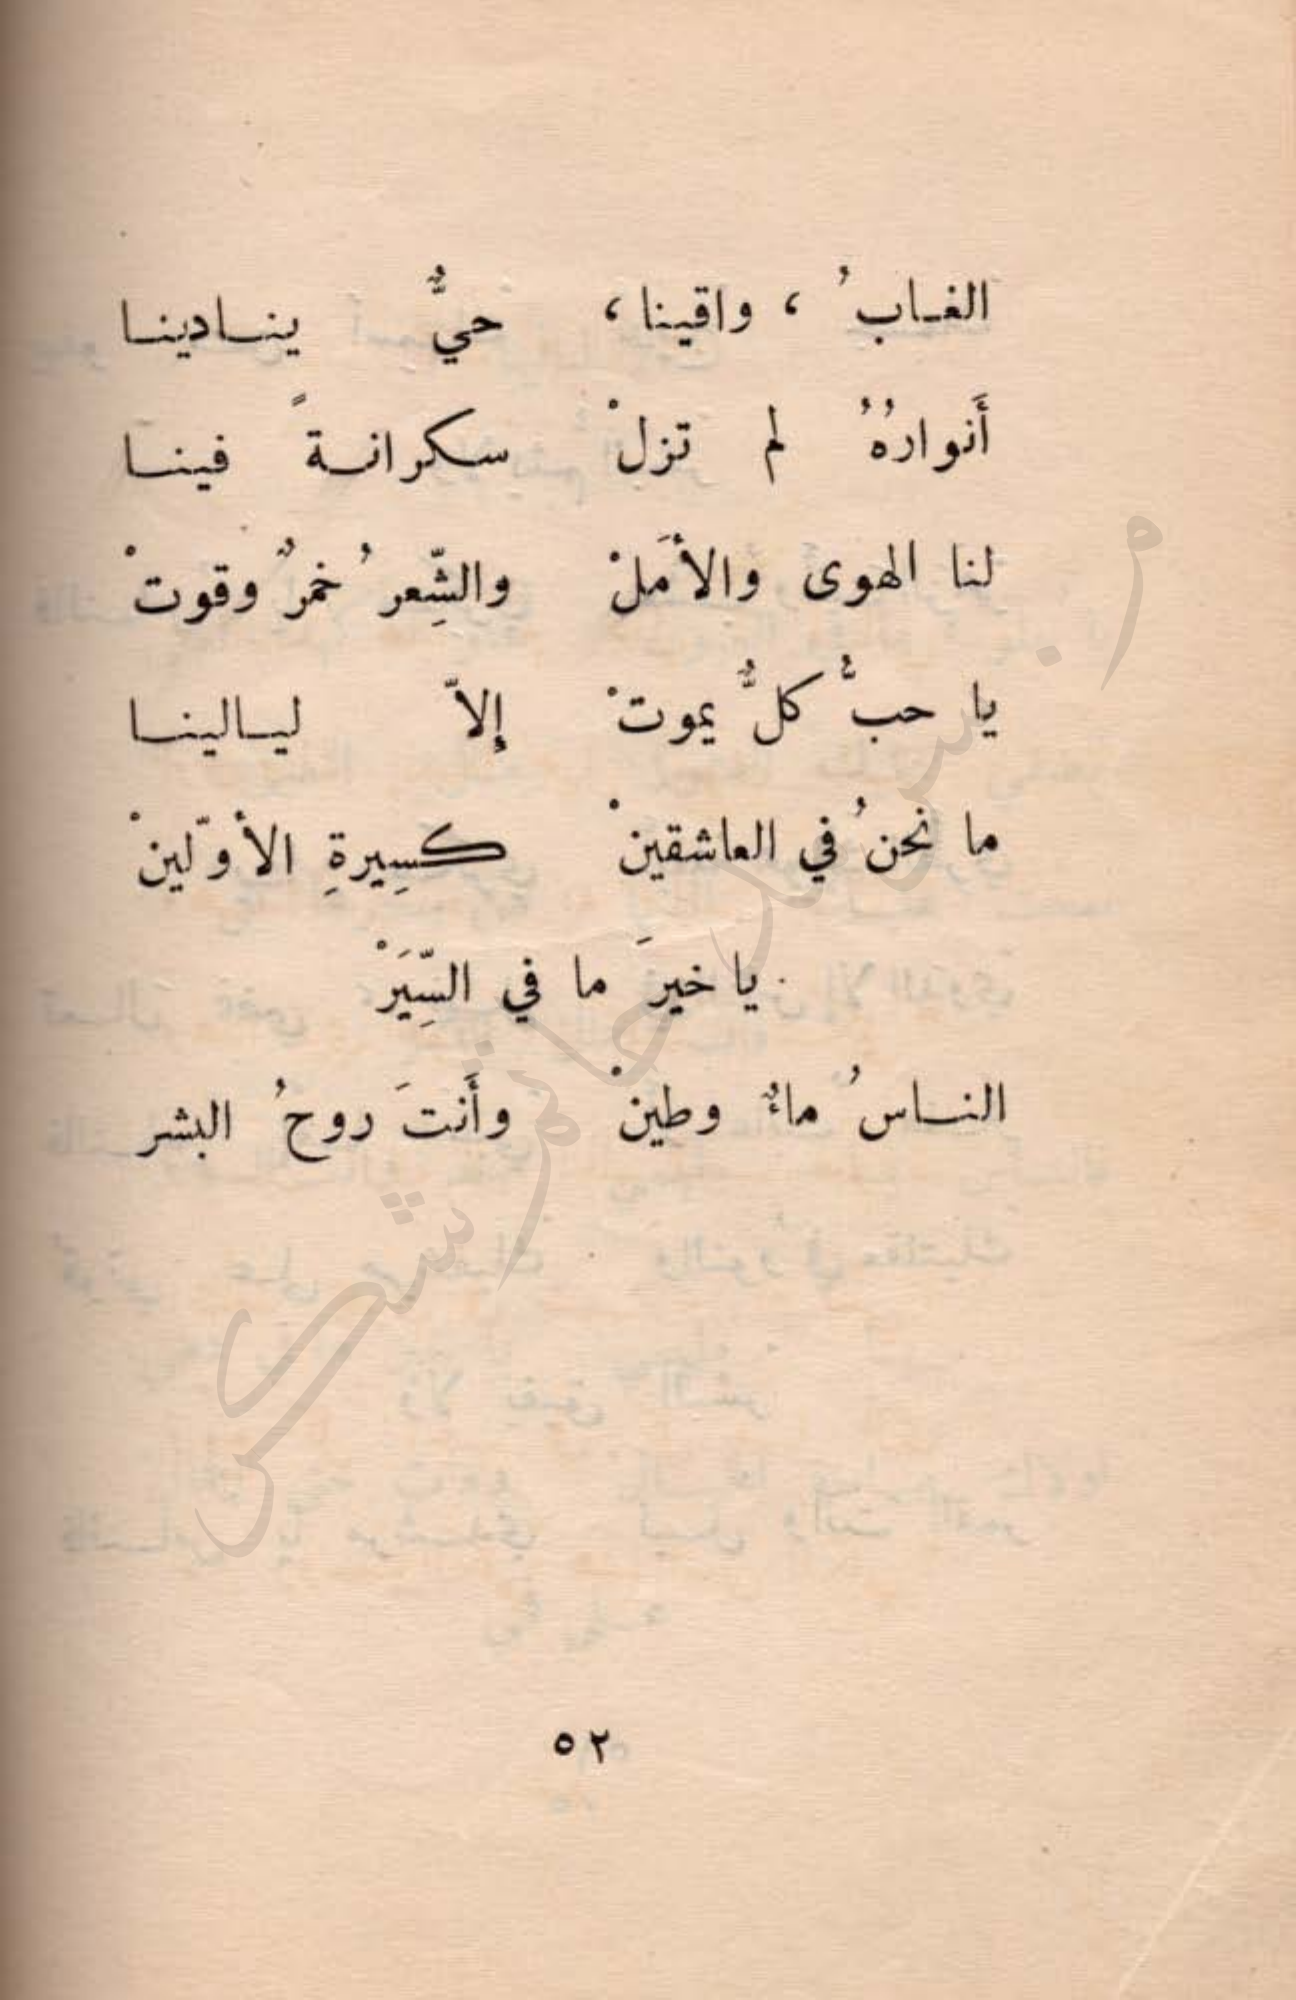 الغابُ ، واقينا ، حيٌّ ينادينا
أَنوارُهُ لم تزلْ سكرانةً فينا
لنا الهوى والأَملْ والشِّعرُ خمرٌ وقوتْ
يا حبُّ كلٌّ يموتْ إِلاّ ليالينا
ما نحنُ في العاشقينْ كسِيرةِ الأوّلينْ
يا خيرَ ما في السِّيَرْ
الناسُ ماءٌ وطينْ وأَنتَ روحُ البشر
٥٢